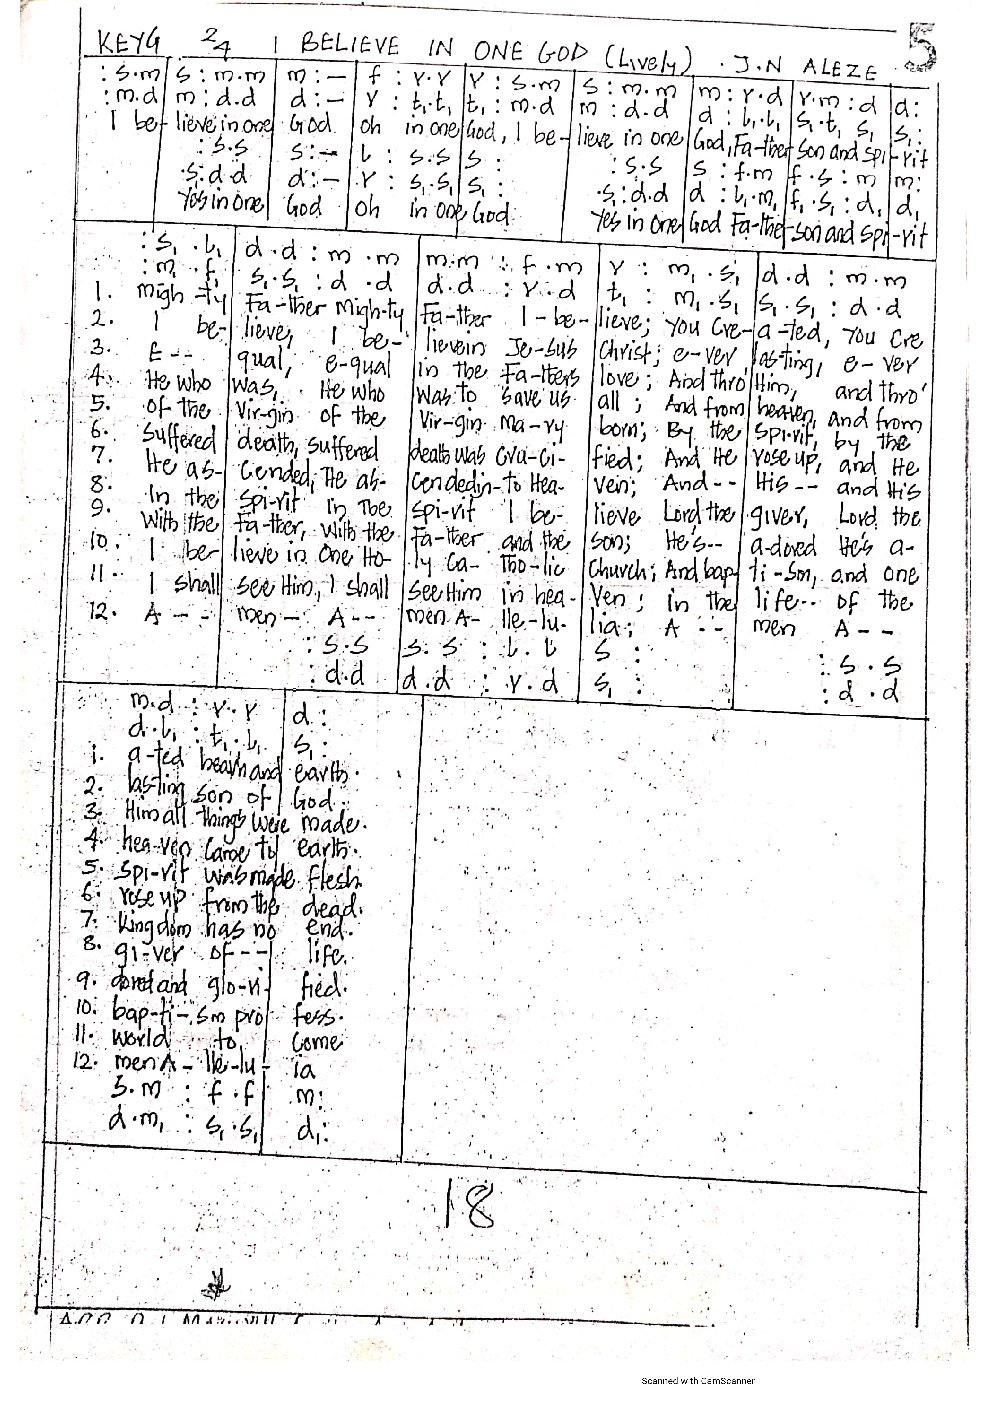 KEYG 2/4 I BELIEVE IN ONE GOD (Lively) . J.N ALEZE 5
: s.m | s : m.m | m : – | f : r.r | r : s.m | s : m.m | m : r.d | r.m : d | d :
: m.d | m : d.d | d : – | r : t₁.t₁ | t₁ : m.d | m : d.d | d : l₁.l₁ | s₁.t₁ s₁ | s₁ :
I be- lieve in one God oh in one God, I be- lieve in one God, Fa-ther son and spi-rit
: s.s | s : – | l : s.s | s : | : s.s | s : f.m | f.s : m | m :
.s₁ : d.d | d : – | r : s₁.s₁ | s₁ : | .s₁ : d.d | d : l₁.m₁ | f₁.s₁ : d₁ | d₁
Yes in one God oh in one God Yes in one God Fa-ther son and spi-rit
: s₁ . l₁ | d.d : m.m | m.m : f.m | r : m₁.s₁ | d.d : m.m
: m₁ . f₁ | s₁.s₁ : d.d | d.d : r.d | t₁ : m₁.s₁ | s₁.s₁ : d.d
1. migh-ty Fa-ther Migh-ty Fa-ther I-be- lieve; You Cre- a-ted, You Cre
2. I be- lieve, I be- lievein Je-sus Christ; e-ver lasting, e-ver
3. E-- qual, e-qual in the Fa-thers love; And thro' Him, and thro'
4. He who was, He who was to save us all; And from heaven, and from
5. of the Vir-gin of the Vir-gin Ma-ry born; By the spi-rit, by the
6. Suffered death, suffered death was Cru-ci- fied; And He rose up, and He
7. He as- Cended, He as- Cendedin-to Hea- ven; And-- His-- and His
8. In the spi-rit In the spi-rit I be- lieve Lord the giver, Lord the
9. With the Fa-ther, with the Fa-ther and the son; He's-- a-dored He's a-
10. I be- lieve in One Ho- ly Ca-tho-lic Church; And bap ti-sm, and one
11. I shall see Him, I shall see Him in hea- ven; in the life.. of the
12. A-- men- A-- men A- lle-lu- lia; A-- men A--
: s.s | s.s : l.l | s : | : s.s
: d.d | d.d : r.d | s₁ : | : d.d
m.d : r.r | d :
d.l₁ : t₁.l₁ | s₁ :
1. a-ted heavn and earth.
2. las-ting son of God.
3. Him all things were made.
4. hea-ven came to earth.
5. spi-rit was made flesh
6. rose up from the dead.
7. kingdom has no end.
8. gi-ver of-- life.
9. dored and glo-ri- fied.
10. bap-ti-sm pro fess.
11. world to come
12. men A-lle-lu- ia
s.m : f.f | m :
d.m₁ : s₁.s₁ | d₁ :
18
Scanned with CamScanner